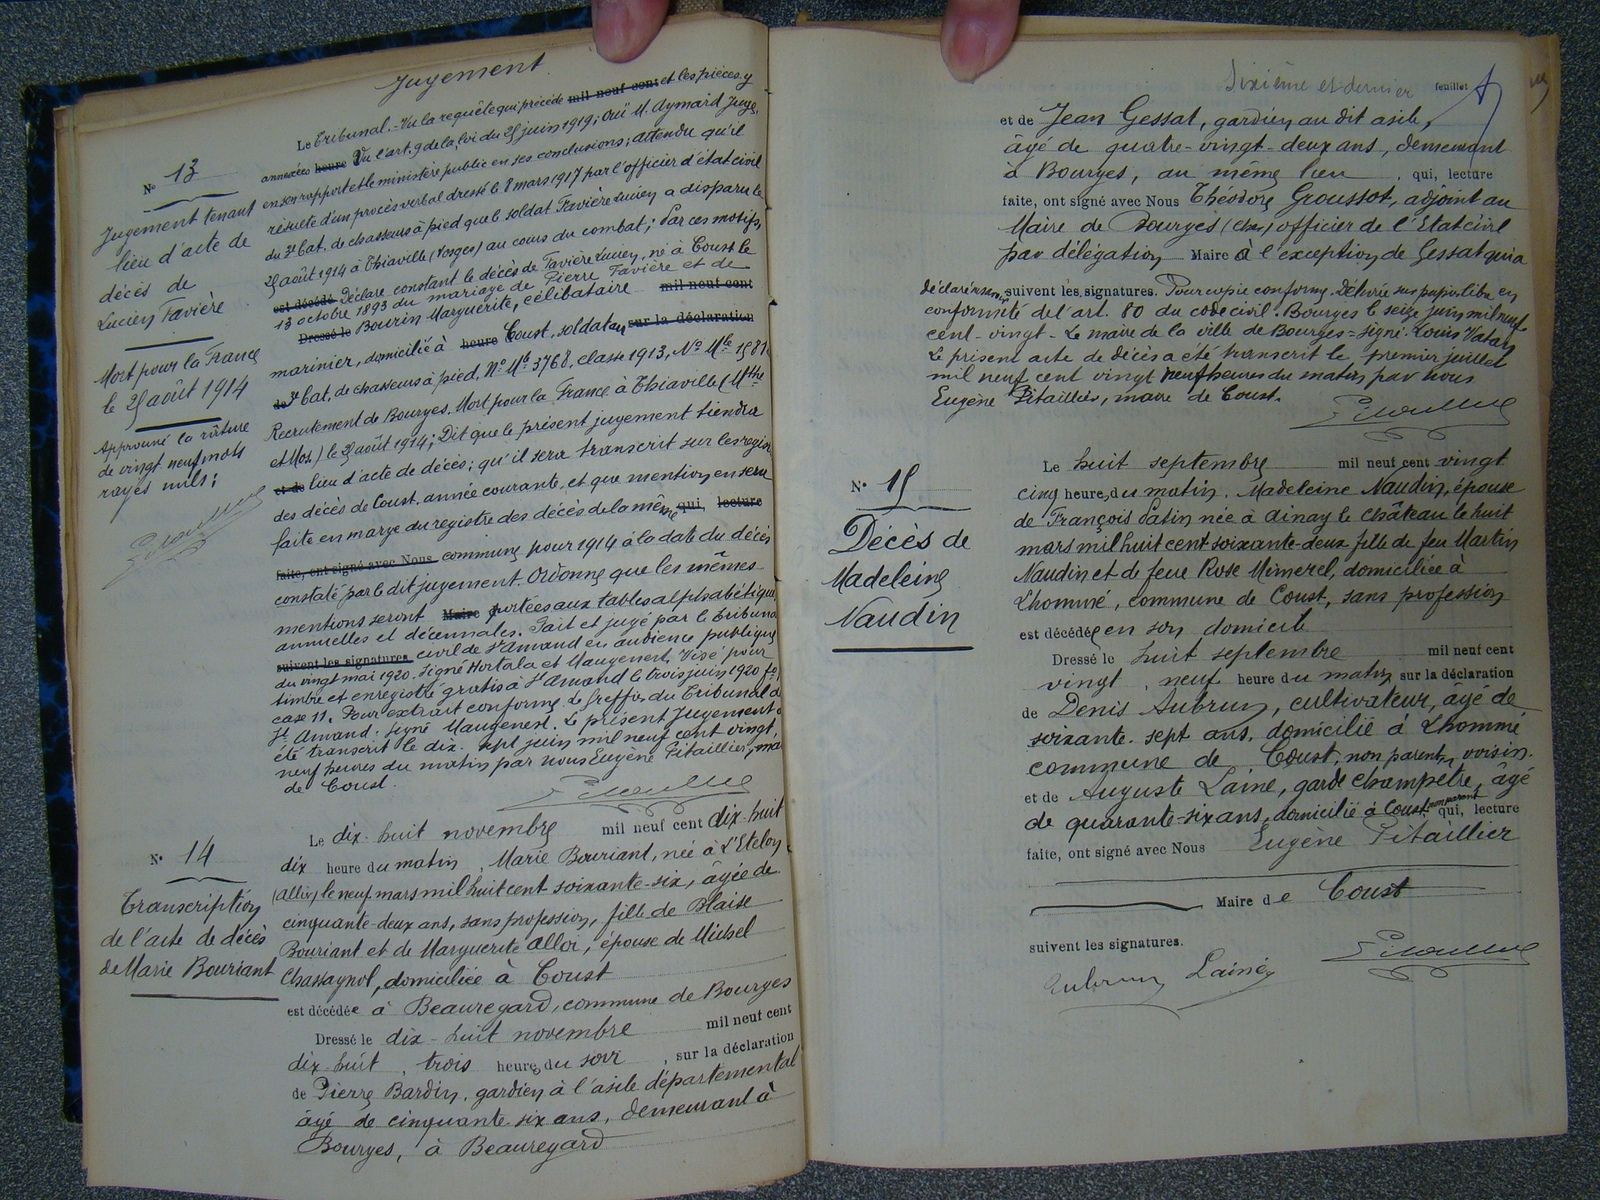 Jugement
Le Tribunal.- Vu la requête qui précède mil neuf cent et les pièces y
annexées heure Vu l'art. 9 de la loi du 25 juin 1919; ouï M. Aymard Juge,
en son rapport et le ministère public en ses conclusions; attendu qu'il
résulte d'un procès verbal dressé le 8 mars 1917 par l'officier d'état civil
du 3e Bat. de chasseurs à pied que le soldat Favière Lucien a disparu le
25 août 1914 à Thiaville (Vosges) au cours du combat; Par ces motifs,
est décédé Déclare constant le décès de Favière Lucien, né à Coust le
13 octobre 1893 du mariage de Pierre Favière et de
Dressé le Bourin Marguerite, célibataire mil neuf cent
marinier, domicilié à heure Coust, soldat au sur la déclaration
de 3e Bat. de chasseurs à pied, No Mle 3768, classe 1913, No Mle 1581
Recrutement de Bourges. Mort pour la France à Thiaville (Mthe
et Mos.) le 25 août 1914; Dit que le présent jugement tiendra
et de lieu d'acte de décès; qu'il sera transcrit sur les regis
des décès de Coust, année courante, et que mention en sera
faite en marge du registre des décès de la même qui, lecture
faite, ont signé avec Nous commune pour 1914 à la date du décès
constaté par le dit jugement. Ordonne que les mêmes
mentions seront Maire portées aux tables alphabétiques
annuelles et décennales. Fait et jugé par le Tribunal
suivent les signatures civil de St Amand en audience publique
du vingt mai 1920. Signé Hortala et Maugenest. Visé pour
timbre et enregistré gratis à St Amand le trois juin 1920 fo
case 11. Pour extrait conforme. Le greffier du Tribunal de
St Amand. signé Maugenest. Le présent Jugement a
été transcrit le dix-sept juin mil neuf cent vingt,
neuf heures du matin par nous Eugène Pitaillier, mai
de Coust.
No 13
Jugement tenant
lieu d'acte de
décès de
Lucien Favière
Mort pour la France
le 25 août 1914
Approuvé la rature
de vingt neuf mots
rayés nuls:
No 14
Transcription
de l'acte de décès
de Marie Bouriant
Le dix-huit novembre mil neuf cent dix-huit
dix heure du matin, Marie Bouriant, née à L'Etelon
(Allier) le neuf mars mil huit cent soixante-six, âgée de
cinquante-deux ans, sans profession, fille de Blaise
Bouriant et de Marguerite Alloi, épouse de Michel
Chassagnol, domiciliée à Coust
est décédée à Beauregard, commune de Bourges
Dressé le dix-huit novembre mil neuf cent
dix-huit, trois heures du soir, sur la déclaration
de Pierre Bardin, gardien à l'asile départemental
âgé de cinquante six ans, demeurant à
Bourges, à Beauregard
Sixième et dernier feuillet
et de Jean Gessat, gardien au dit asile,
âgé de quatre-vingt-deux ans, demeurant
à Bourges, au même lieu, qui, lecture
faite, ont signé avec Nous Théodore Groussot, adjoint au
Maire de Bourges (Cher) officier de l'Etat civil
par délégation Maire à l'exception de Gessat qui a
déclaré suivent les signatures. Pour copie conforme. Délivrée sur papier libre en
conformité de l'art. 80 du code civil. Bourges le seize juin mil neuf
cent-vingt- Le maire de la ville de Bourges = signé: Louis Vatan
Le présent acte de décès a été transcrit le premier juillet
mil neuf cent vingt neuf heures du matin par nous
Eugène Pitaillier, maire de Coust.
No 15
Décès de
Madeleine
Naudin
Le huit septembre mil neuf cent vingt
cinq heure du matin. Madeleine Naudin, épouse
de François Patin née à Ainay le Château le huit
mars mil huit cent soixante-deux fille de feu Martin
Naudin et de feue Rose Mimerel, domiciliée à
Lhommé, commune de Coust, sans profession
est décédée en son domicile
Dressé le huit septembre mil neuf cent
vingt, neuf heure du matin sur la déclaration
de Denis Aubrun, cultivateur, âgé de
soixante-sept ans, domicilié à Lhommé
commune de Coust, non parent, voisin.
et de Auguste Lainé, garde champêtre, âgé
de quarante-six ans, domicilié à Coust non parent qui, lecture
faite, ont signé avec Nous Eugène Pitaillier
Maire de Coust
suivent les signatures.
Aubrun Lainé